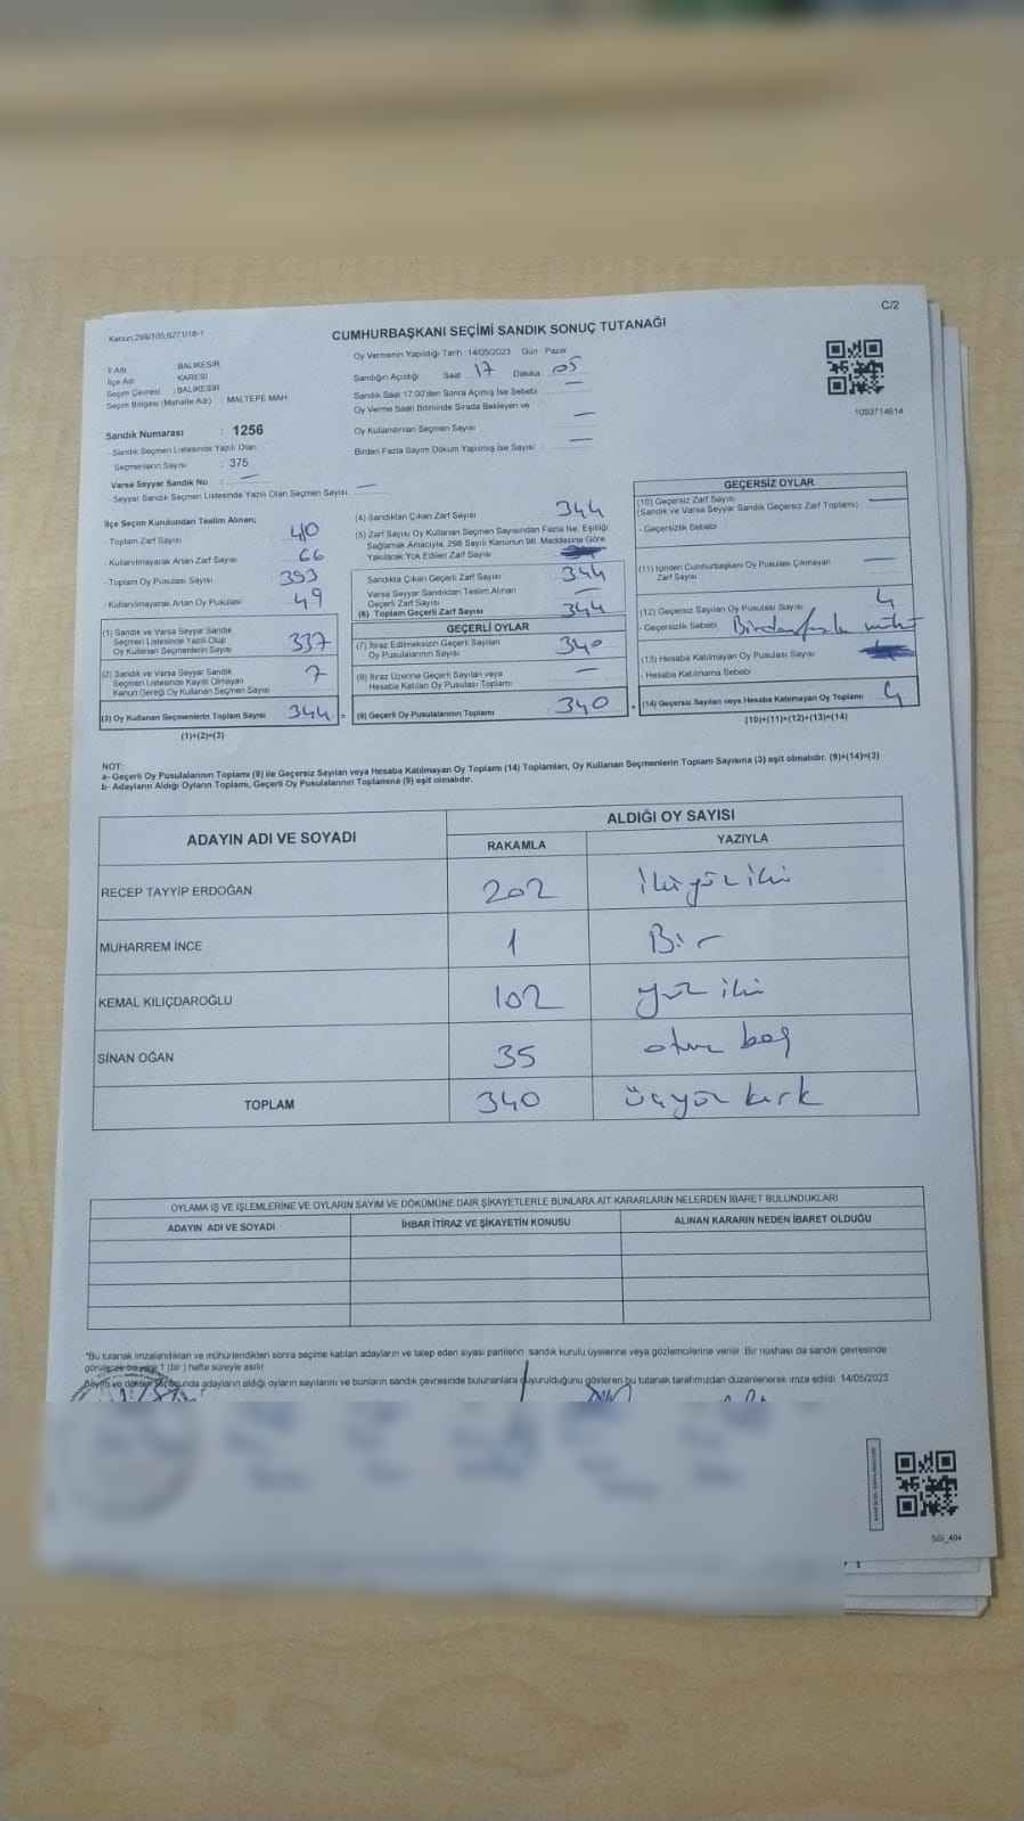 C/2
Kanun:298/105;6271/18-1
CUMHURBAŞKANI SEÇİMİ SANDIK SONUÇ TUTANAĞI
İl Adı : BALIKESİR
İlçe Adı : KARESİ
Seçim Çevresi : BALIKESİR
Seçim Bölgesi (Mahalle Adı) : MALTEPE MAH.
Oy Vermenin Yapıldığı Tarih :14/05/2023 Gün : Pazar
Sandığın Açıldığı Saat 17 Dakika 05
Sandık Saat 17.00'den Sonra Açılmış İse Sebebi
Oy Verme Saati Bitiminde Sırada Bekleyen ve
Oy Kullandırılan Seçmen Sayısı
Birden Fazla Sayım Döküm Yapılmış İse Sayısı
1093714614
Sandık Numarası : 1256
Sandık Seçmen Listesinde Yazılı Olan
Seçmenlerin Sayısı : 375
Varsa Seyyar Sandık No : —
Seyyar Sandık Seçmen Listesinde Yazılı Olan Seçmen Sayısı : —
İlçe Seçim Kurulundan Teslim Alınan;
- Toplam Zarf Sayısı 410
- Kullanılmayarak Artan Zarf Sayısı 66
- Toplam Oy Pusulası Sayısı 393
- Kullanılmayarak Artan Oy Pusulası 49
(1) Sandık ve Varsa Seyyar Sandık
Seçmen Listesinde Yazılı Olup
Oy Kullanan Seçmenlerin Sayısı 337
(2) Sandık ve Varsa Seyyar Sandık
Seçmen Listesinde Kaydı Olmayan
Kanun Gereği Oy Kullanan Seçmen Sayısı 7
(3) Oy Kullanan Seçmenlerin Toplam Sayısı 344 =
(1)+(2)=(3)
(4) Sandıktan Çıkan Zarf Sayısı 344
(5) Zarf Sayısı Oy Kullanan Seçmen Sayısından Fazla İse, Eşitliği
Sağlamak Amacıyla, 298 Sayılı Kanunun 98. Maddesine Göre
Yakılarak Yok Edilen Zarf Sayısı
Sandıkta Çıkan Geçerli Zarf Sayısı 344
Varsa Seyyar Sandıktan Teslim Alınan
Geçerli Zarf Sayısı —
(6) Toplam Geçerli Zarf Sayısı 344
GEÇERLİ OYLAR
(7) İtiraz Edilmeksizin Geçerli Sayılan
Oy Pusulalarının Sayısı 340
(8) İtiraz Üzerine Geçerli Sayılan veya
Hesaba Katılan Oy Pusulası Toplamı —
(9) Geçerli Oy Pusulalarının Toplamı 340 +
GEÇERSİZ OYLAR
(10) Geçersiz Zarf Sayısı —
(Sandık ve Varsa Seyyar Sandık Geçersiz Zarf Toplamı)
- Geçersizlik Sebebi
(11) İçinden Cumhurbaşkanı Oy Pusulası Çıkmayan
Zarf Sayısı —
(12) Geçersiz Sayılan Oy Pusulası Sayısı 4
- Geçersizlik Sebebi Birden fazla mühür
(13) Hesaba Katılmayan Oy Pusulası Sayısı
- Hesaba Katılmama Sebebi
(14) Geçersiz Sayılan veya Hesaba Katılmayan Oy Toplamı 4
(10)+(11)+(12)+(13)=(14)
NOT:
a- Geçerli Oy Pusulalarının Toplamı (9) ile Geçersiz Sayılan veya Hesaba Katılmayan Oy Toplamı (14) Toplamları, Oy Kullanan Seçmenlerin Toplam Sayısına (3) eşit olmalıdır. (9)+(14)=(3)
b- Adayların Aldığı Oyların Toplamı, Geçerli Oy Pusulalarının Toplamına (9) eşit olmalıdır.
ADAYIN ADI VE SOYADI
ALDIĞI OY SAYISI
RAKAMLA YAZIYLA
RECEP TAYYİP ERDOĞAN 202 ikiyüz iki
MUHARREM İNCE 1 Bir
KEMAL KILIÇDAROĞLU 102 yüz iki
SİNAN OĞAN 35 otuz beş
TOPLAM 340 üçyüz kırk
OYLAMA İŞ VE İŞLEMLERİNE VE OYLARIN SAYIM VE DÖKÜMÜNE DAİR ŞİKAYETLERLE BUNLARA AİT KARARLARIN NELERDEN İBARET BULUNDUKLARI
ADAYIN ADI VE SOYADI İHBAR İTİRAZ VE ŞİKAYETİN KONUSU ALINAN KARARIN NEDEN İBARET OLDUĞU
*Bu tutanak imzalandıktan ve mühürlendikten sonra seçime katılan adayların ve talep eden siyasi partilerin sandık kurulu üyelerine veya gözlemcilerine verilir. Bir nüshası da sandık çevresinde
görülecek bir yere 1 (bir ) hafta süreyle asılır.
Sayım ve döküm sonucunda adayların aldığı oyların sayılarını ve bunların sandık çevresinde bulunanlara duyurulduğunu gösteren bu tutanak tarafımızdan düzenlenerek imza edildi. 14/05/2023